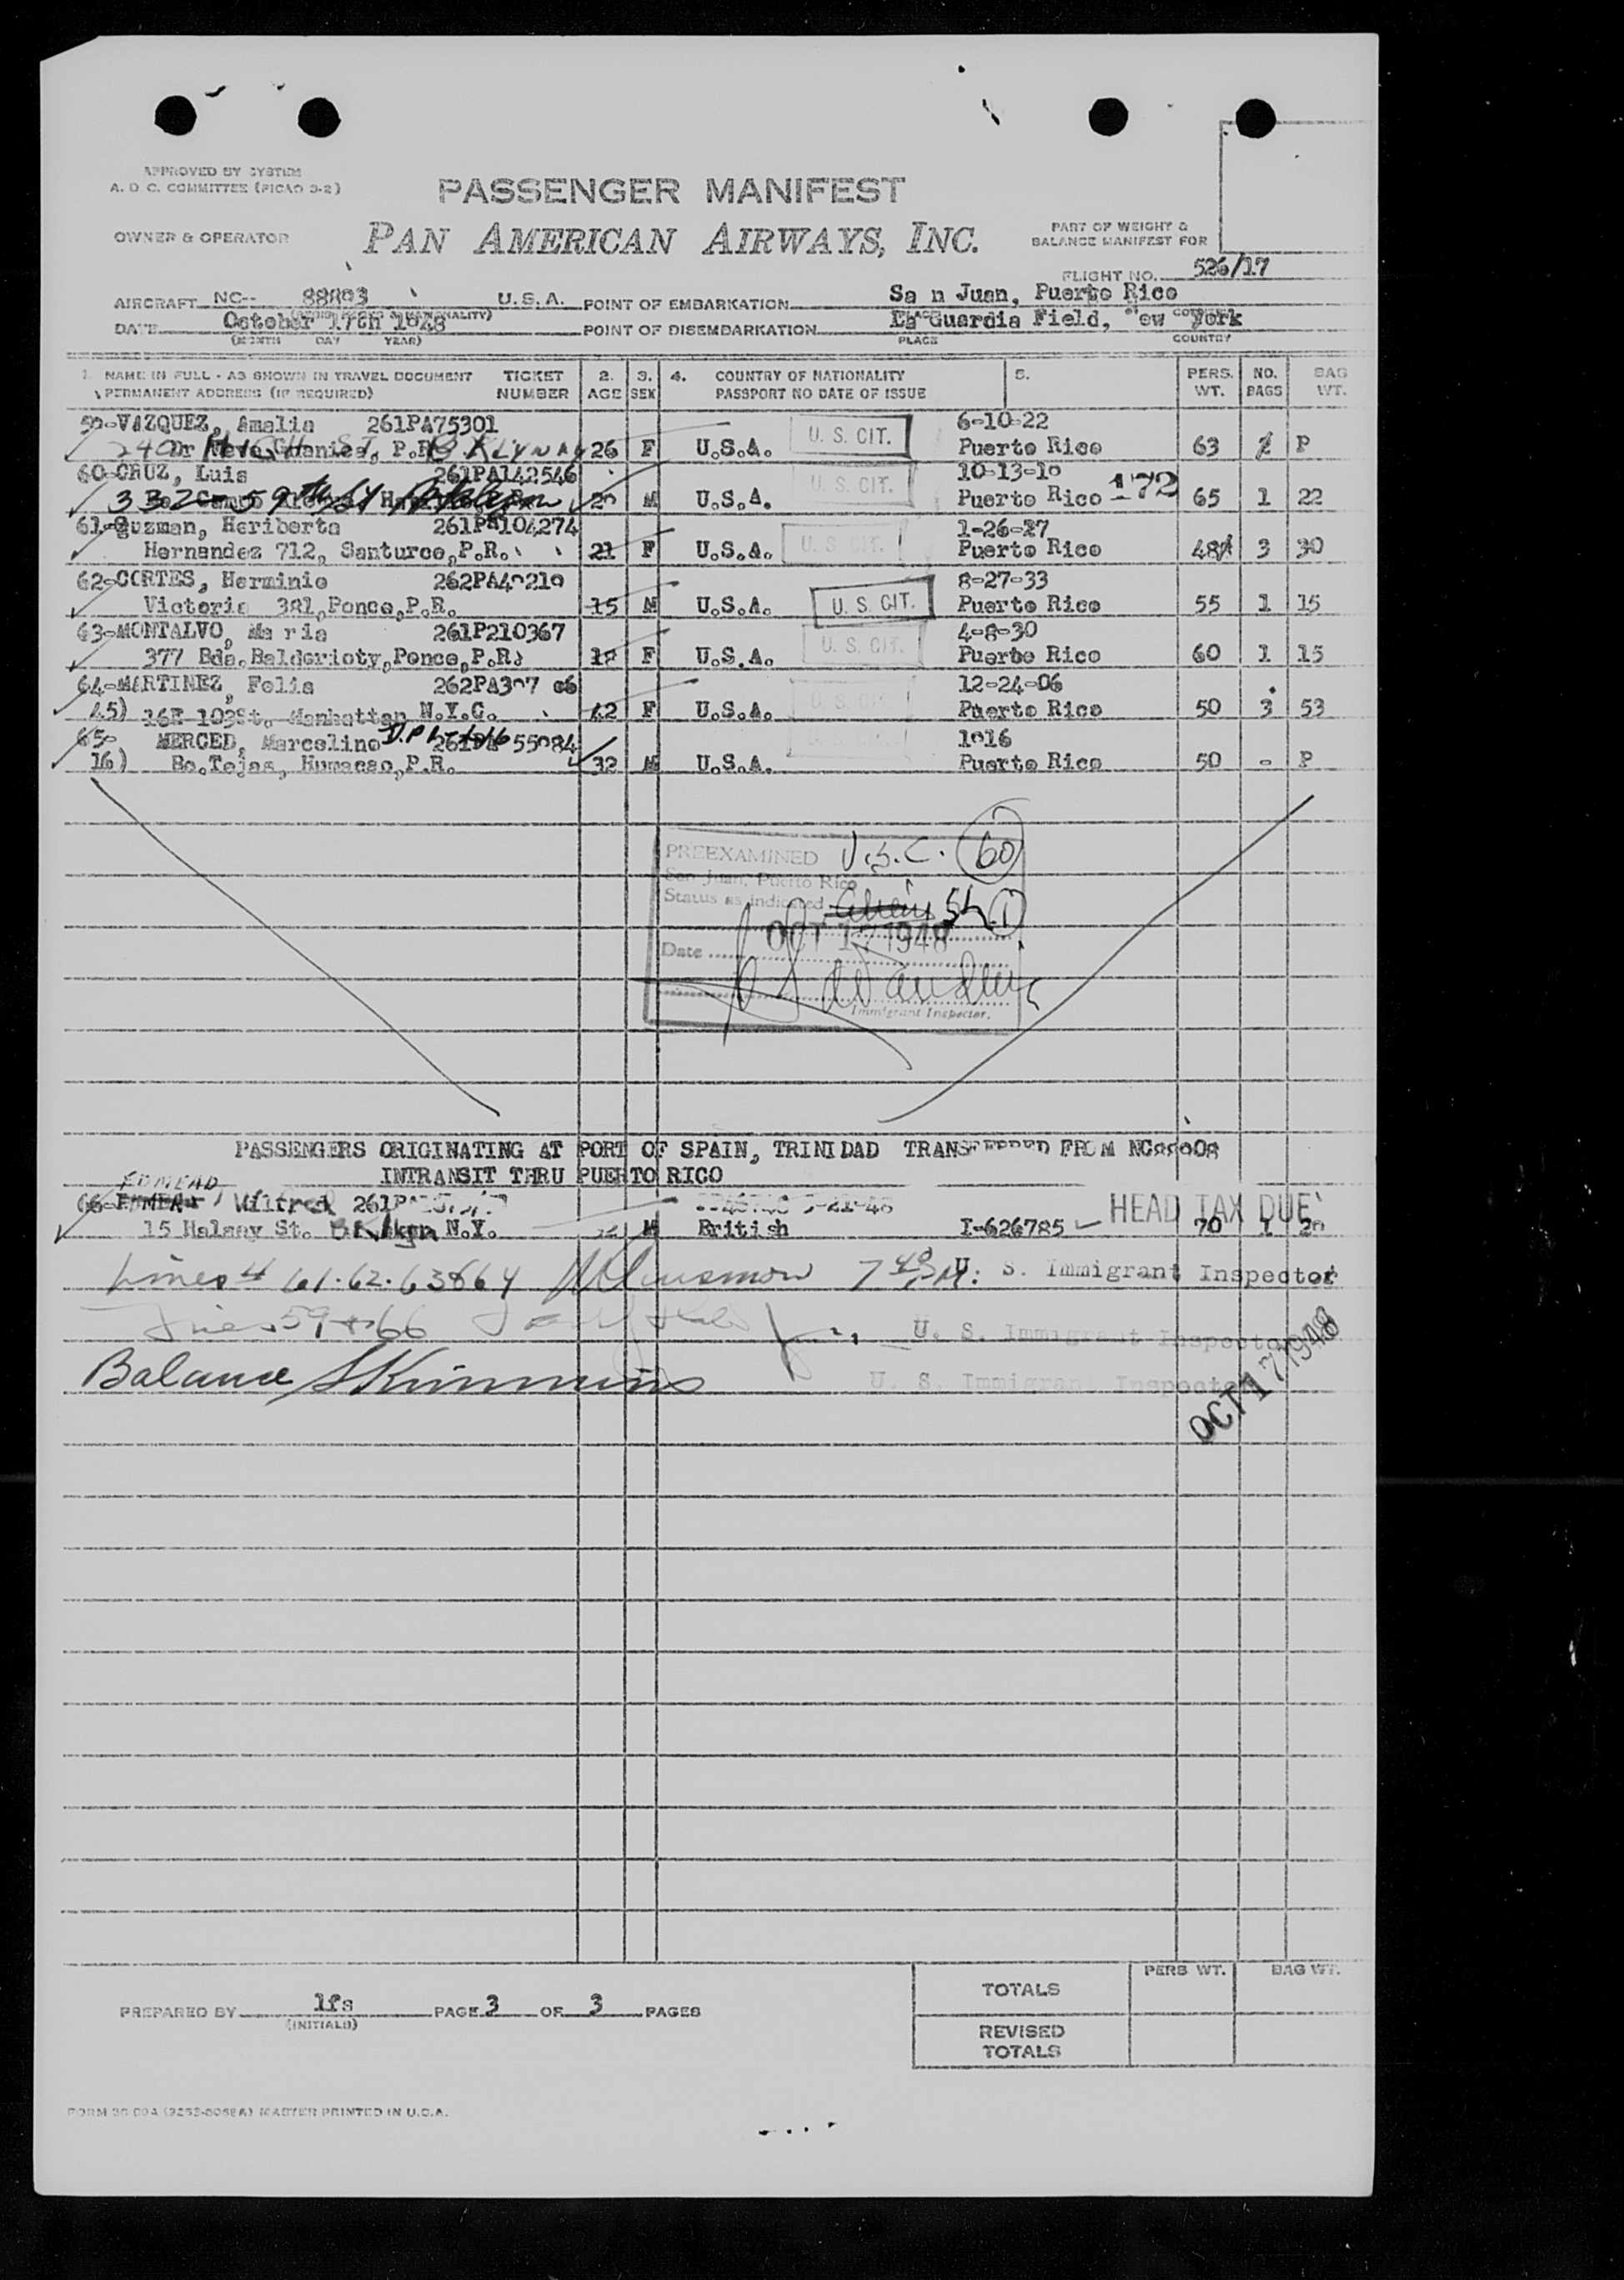 APPROVED BY SYSTEM
A. O C. COMMITTEE (PICAO 3-2)
PASSENGER MANIFEST
OWNER & OPERATOR
PAN AMERICAN AIRWAYS, INC.
PART OF WEIGHT &
BALANCE MANIFEST FOR
FLIGHT NO. 526/17
AIRCRAFT NC-- 88803 U.S.A. POINT OF EMBARKATION Sa n Juan, Puerto Rico
DATE October 17th 1948 POINT OF DISEMBARKATION La Guardia Field, New York
(MONTH DAY YEAR) PLACE COUNTRY
1. NAME IN FULL - AS SHOWN IN TRAVEL DOCUMENT TICKET 2. 3. 4. COUNTRY OF NATIONALITY 5. PERS. NO. BAG
PERMANENT ADDRESS (IF REQUIRED) NUMBER AGE SEX PASSPORT NO DATE OF ISSUE WT. BAGS WT.
59-VAZQUEZ, Amalia 261PA75301 U. S. CIT. 6-10-22
240 HIGH ST, P.R. BKLYN NY 26 F U.S.A. Puerto Rico 63 2 P
60-CRUZ, Luis 261PA142546 U. S. CIT. 10-13-19
332- 59th St M U.S.A. Puerto Rico 172 65 1 22
61-guzman, Heriberta 261PA104274 1-26-27
Hernandez 712, Santurce, P.R. 21 F U.S.A. U. S. CIT. Puerto Rico 48 3 30
62-CORTES, Herminio 262PA49219 8-27-33
Victoria 381, Ponce, P.R. 15 M U.S.A. U. S. CIT. Puerto Rico 55 1 15
63-MONTALVO, Ma ria 261P210367 U. S. CIT. 4-8-30
377 Bda. Baldorioty, Ponce, P.R. 18 F U.S.A. Puerto Rico 60 1 15
64-MARTINEZ, Felia 262PA397 06 12-24-06
45) 16E 103St. Manhattan N.Y.C. 42 F U.S.A. U. S. CIT. Puerto Rico 50 3 53
65- MERCED, Marcelino 55984 1916
16) Bo. Tejas, Humacao, P.R. 32 M U.S.A. Puerto Rico 50 - P
PREEXAMINED U.S.C. 60
San Juan, Puerto Rico
Status as indicated 1
Date OCT 17 1948
Immigrant Inspector.
PASSENGERS ORIGINATING AT PORT OF SPAIN, TRINIDAD TRANSFERRED FROM
INTRANSIT THRU PUERTO RICO
EDMEAD
66- Wilfred 261P HEAD TAX DUE
15 Halsey St. Bklyn N.Y. M British I-626785 70 1 20
Lines # 61.62.63&64 U. S. Immigrant Inspector
Lines 59 to 66 U. S. Immigrant Inspector
Balance U. S. Immigrant Inspector
OCT 17 1948
PERS WT. BAG WT.
TOTALS
PREPARED BY lfs PAGE 3 OF 3 PAGES
(INITIALS)
REVISED
TOTALS
MASTER PRINTED IN U.S.A.